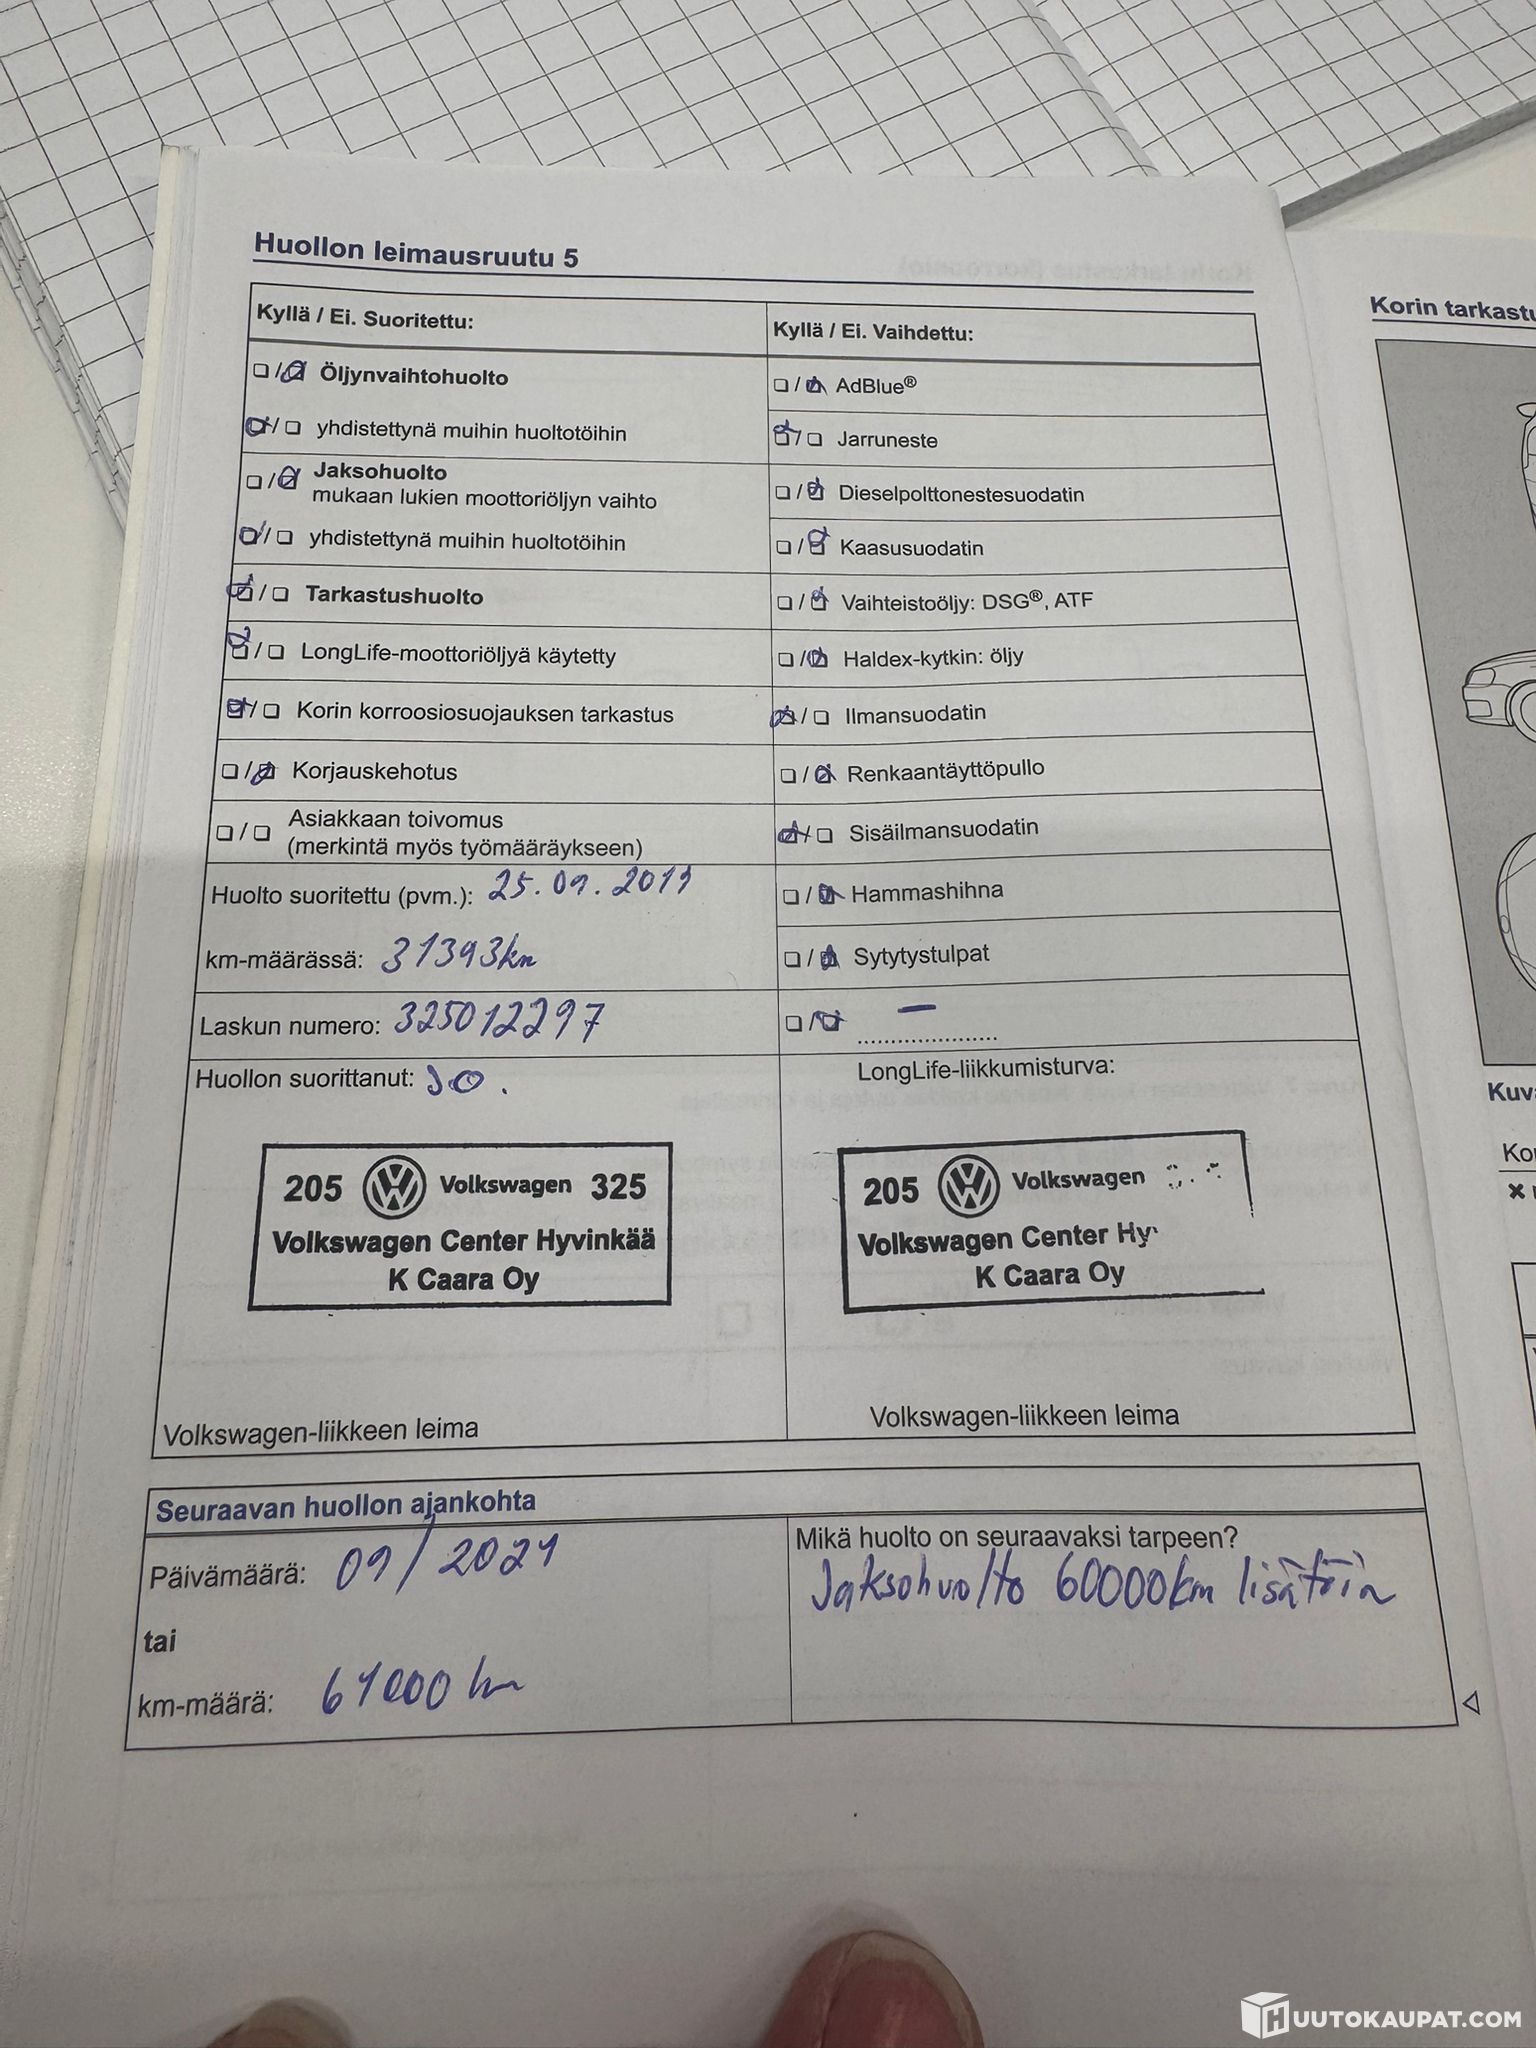 Huollon leimausruutu 5
Kyllä / Ei. Suoritettu:
☐ / ☑ Öljynvaihtohuolto
☑ / ☐ yhdistettynä muihin huoltotöihin
☐ / ☑ Jaksohuolto
mukaan lukien moottoriöljyn vaihto
☑ / ☐ yhdistettynä muihin huoltotöihin
☑ / ☐ Tarkastushuolto
☑ / ☐ LongLife-moottoriöljyä käytetty
☑ / ☐ Korin korroosiosuojauksen tarkastus
☐ / ☑ Korjauskehotus
☐ / ☐ Asiakkaan toivomus
(merkintä myös työmääräykseen)
Huolto suoritettu (pvm.): 25.09.2019
km-määrässä: 31393km
Laskun numero: 325012297
Huollon suorittanut: JO.
205 Volkswagen 325
Volkswagen Center Hyvinkää
K Caara Oy
Volkswagen-liikkeen leima
Kyllä / Ei. Vaihdettu:
☐ / ☑ AdBlue®
☑ / ☐ Jarruneste
☐ / ☑ Dieselpolttonestesuodatin
☐ / ☑ Kaasusuodatin
☐ / ☑ Vaihteistoöljy: DSG®, ATF
☐ / ☑ Haldex-kytkin: öljy
☑ / ☐ Ilmansuodatin
☐ / ☑ Renkaantäyttöpullo
☑ / ☐ Sisäilmansuodatin
☐ / ☑ Hammashihna
☐ / ☑ Sytytystulpat
☐ / ☑ –
LongLife-liikkumisturva:
205 Volkswagen
Volkswagen Center Hy
K Caara Oy
Volkswagen-liikkeen leima
Seuraavan huollon ajankohta
Päivämäärä: 09/2021
tai
km-määrä: 61000 km
Mikä huolto on seuraavaksi tarpeen?
Jaksohuolto 60000km lisätöin
Korin tarkastu
Kuv
Ko
HUUTOKAUPAT.COM